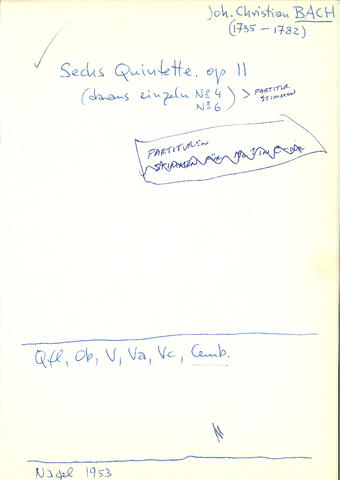 Joh. Christian BACH
(1735 - 1782)
Sechs Quintette. op 11
(daraus einzeln No 4 ) > PARTITUR
No 6 STIMMEN
PARTITUR IN
Qfl, Ob, V, Va, Vc, Cemb.
Nagel 1953